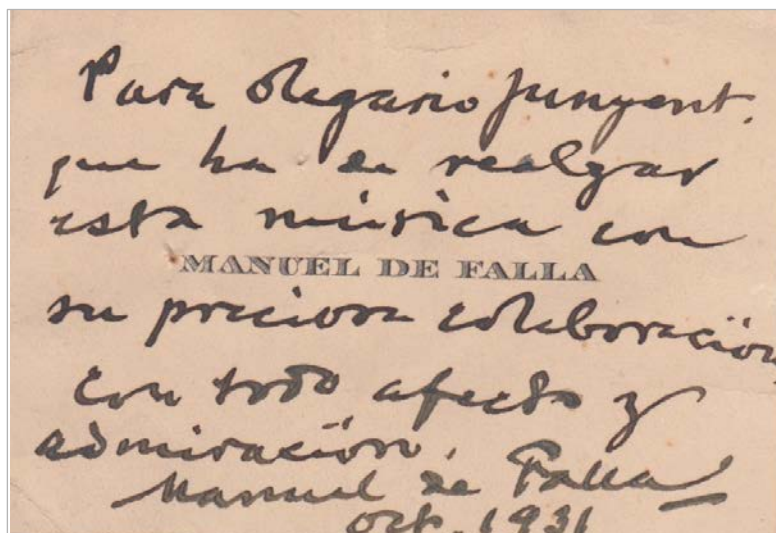 Para Olegario Junyent,
que ha de realzar
esta música con
MANUEL DE FALLA
su preciosa colaboración,
con todo afecto y
admiración.
Manuel de Falla
Oct. 1931